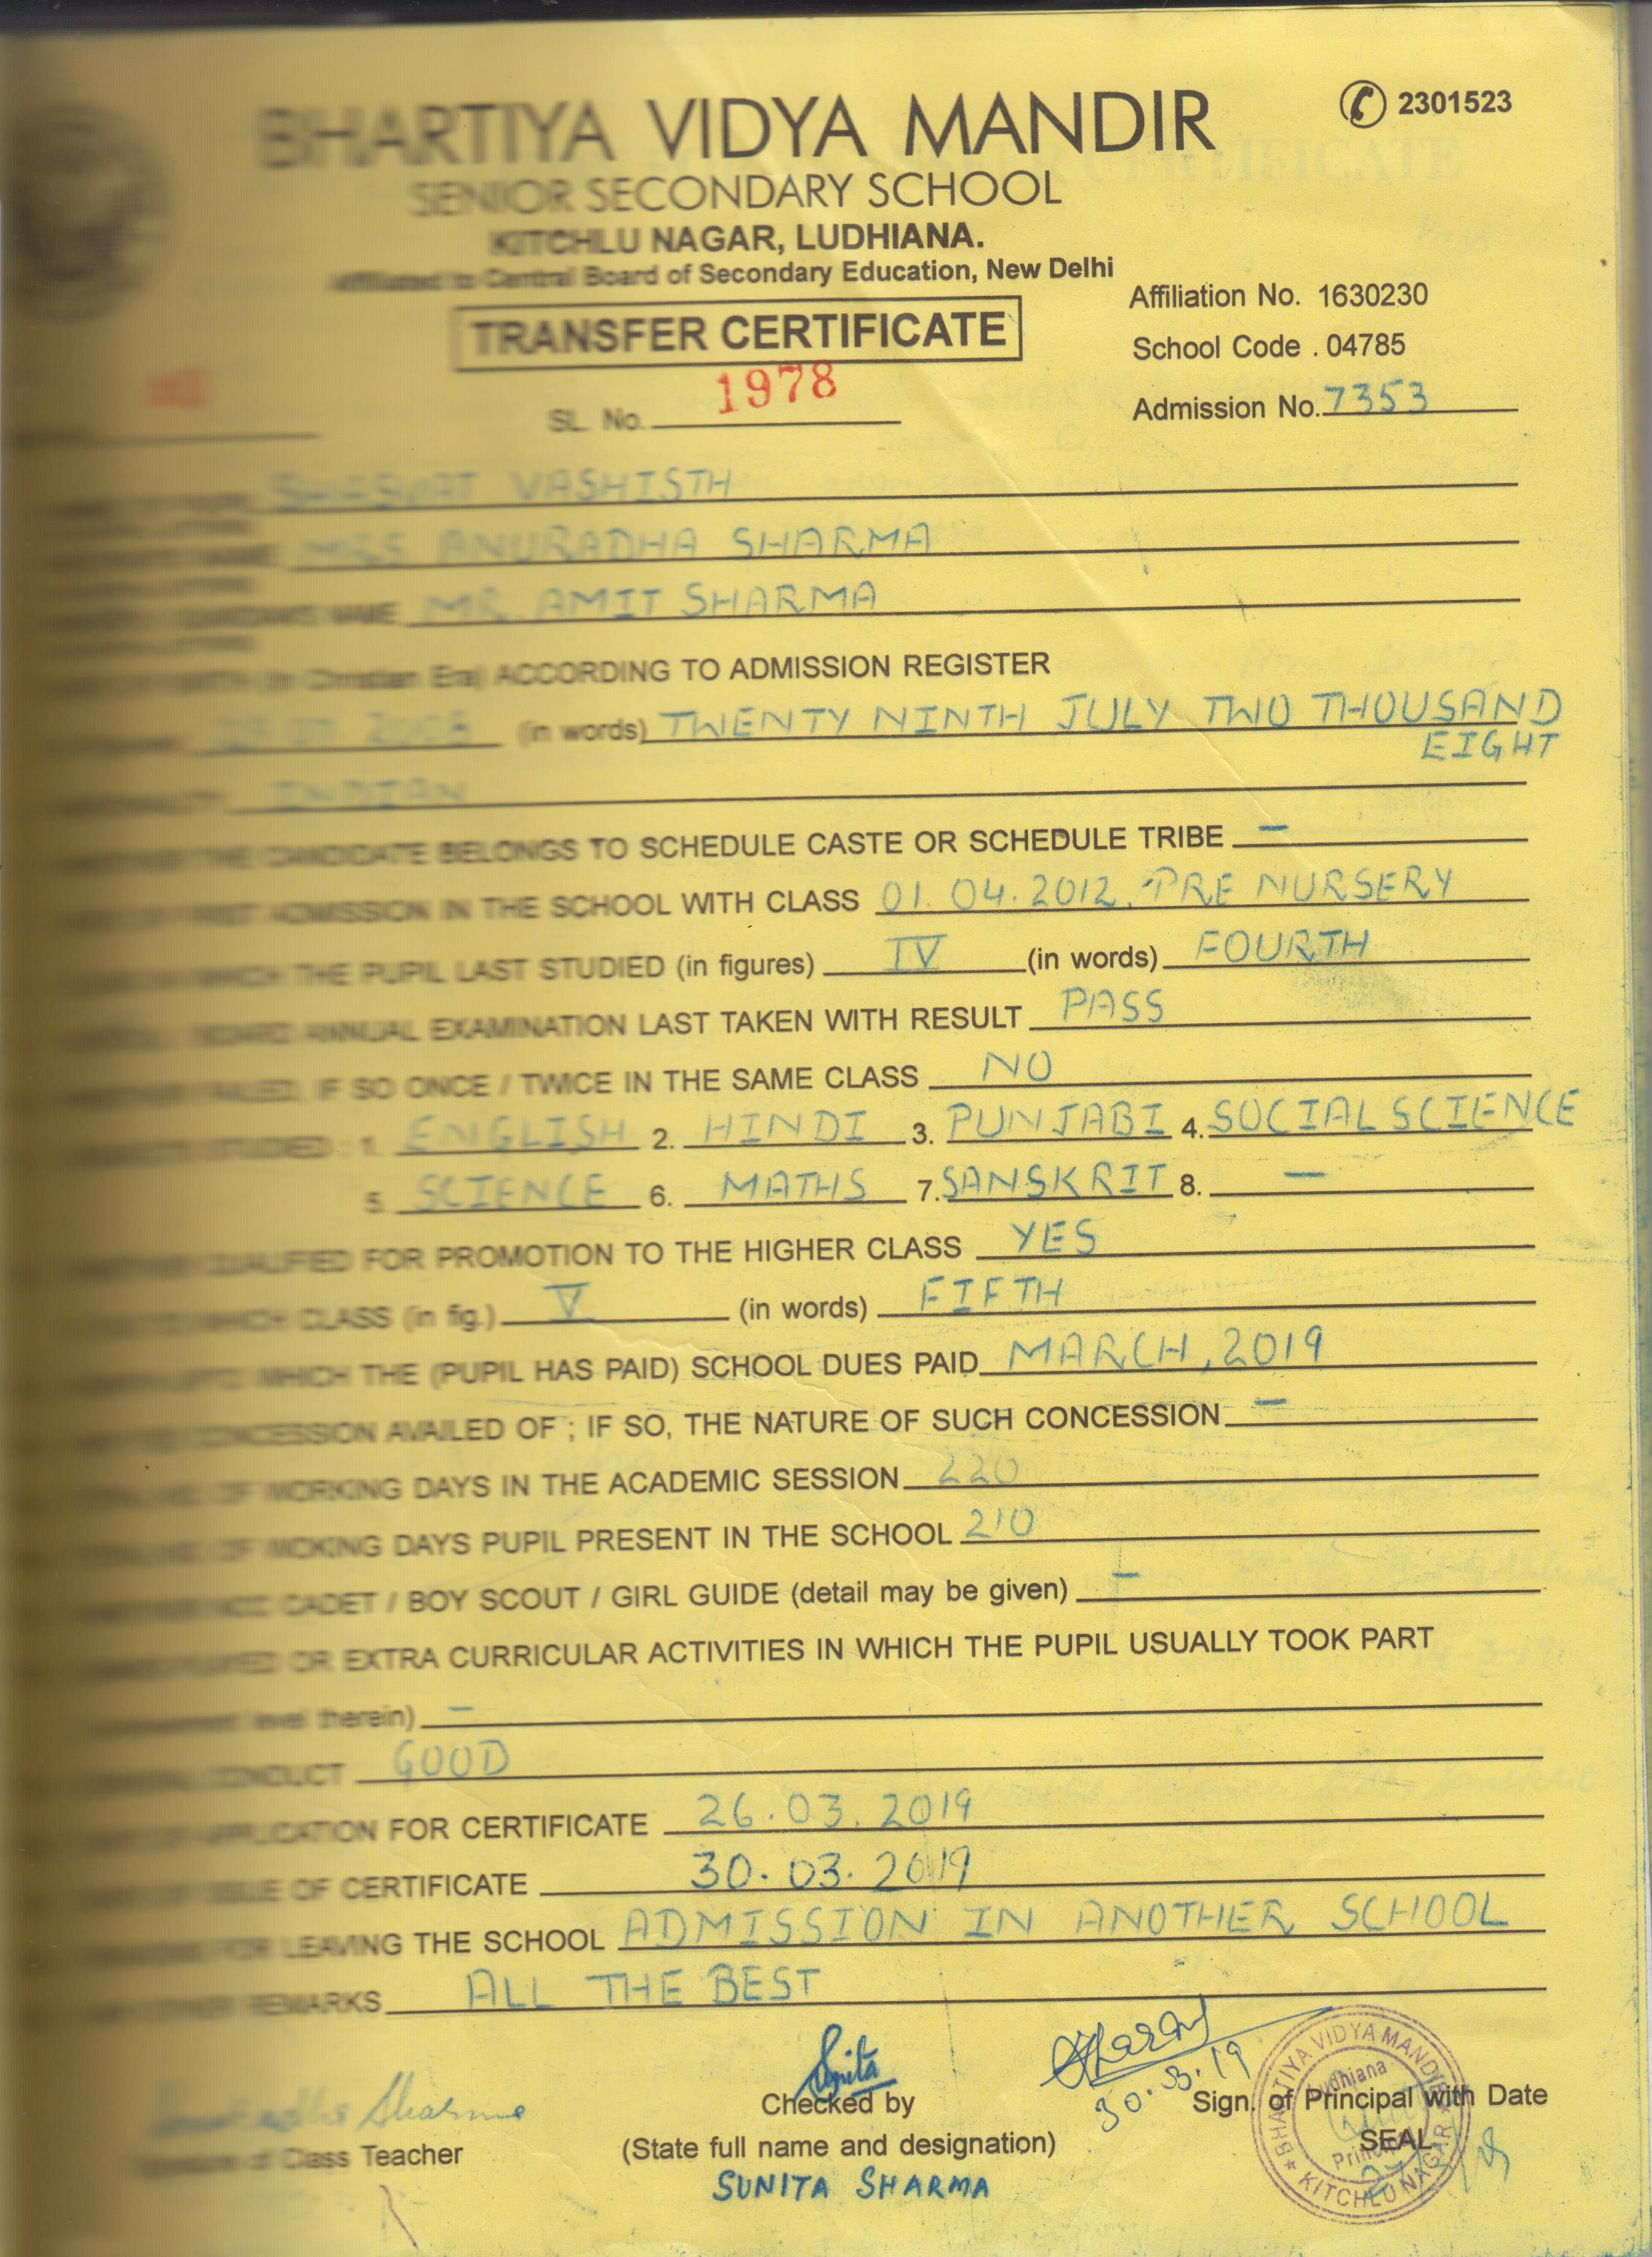 BHARTIYA VIDYA MANDIR
2301523
SENIOR SECONDARY SCHOOL
KITCHLU NAGAR, LUDHIANA.
Affiliated to Central Board of Secondary Education, New Delhi
Affiliation No. 1630230
TRANSFER CERTIFICATE
School Code . 04785
SL. No. 1978
Admission No. 7353
VASHISTH
NAME MRS ANURADHA SHARMA
NAME MR. AMIT SHARMA
(In Christian Era) ACCORDING TO ADMISSION REGISTER
2008 (in words) TWENTY NINTH JULY TWO THOUSAND
EIGHT
INDIAN
THE CANDIDATE BELONGS TO SCHEDULE CASTE OR SCHEDULE TRIBE –
ADMISSION IN THE SCHOOL WITH CLASS 01.04.2012, PRE NURSERY
WHICH THE PUPIL LAST STUDIED (in figures) IV (in words) FOURTH
ANNUAL EXAMINATION LAST TAKEN WITH RESULT PASS
FAILED, IF SO ONCE / TWICE IN THE SAME CLASS NO
STUDIED : 1. ENGLISH 2. HINDI 3. PUNJABI 4. SOCIAL SCIENCE
5. SCIENCE 6. MATHS 7. SANSKRIT 8. –
QUALIFIED FOR PROMOTION TO THE HIGHER CLASS YES
WHICH CLASS (in fig.) V (in words) FIFTH
WHICH THE (PUPIL HAS PAID) SCHOOL DUES PAID MARCH, 2019
CONCESSION AVAILED OF ; IF SO, THE NATURE OF SUCH CONCESSION –
OF WORKING DAYS IN THE ACADEMIC SESSION 220
OF WOKING DAYS PUPIL PRESENT IN THE SCHOOL 210
CADET / BOY SCOUT / GIRL GUIDE (detail may be given) –
OR EXTRA CURRICULAR ACTIVITIES IN WHICH THE PUPIL USUALLY TOOK PART
level therein) –
CONDUCT GOOD
APPLICATION FOR CERTIFICATE 26.03.2019
ISSUE OF CERTIFICATE 30.03.2019
FOR LEAVING THE SCHOOL ADMISSION IN ANOTHER SCHOOL
REMARKS ALL THE BEST
Sunita
30.3.19
Sharma
Checked by
Sign. of Principal with Date
of Class Teacher
(State full name and designation)
SEAL
SUNITA SHARMA
BHARTIYA VIDYA MANDIR
KITCHLU NAGAR
Ludhiana
Principal